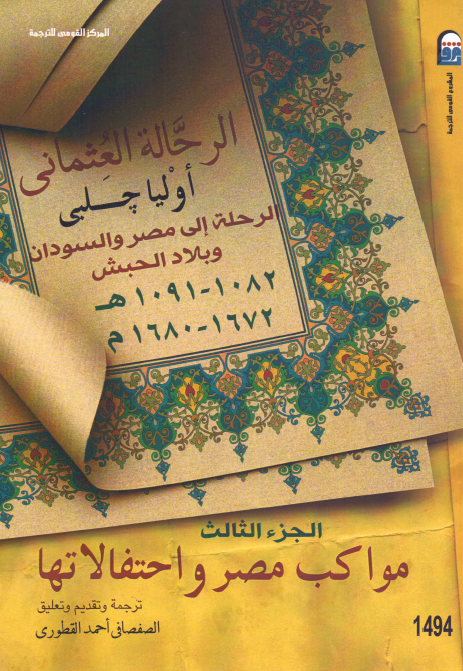 المركز القومى للترجمة
المشروع القومى للترجمة
الرحَّالة العُثمانى
أوْليا چـلبى
الرحلة إلى مصر والسودان
وبلاد الحبش
١٠٨٢-١٠٩١ هـ
١٦٧٢-١٦٨٠ م
الجزء الثالث
مواكب مصر واحتفالاتها
ترجمة وتقديم وتعليق
الصفصافى أحمد القطورى
1494